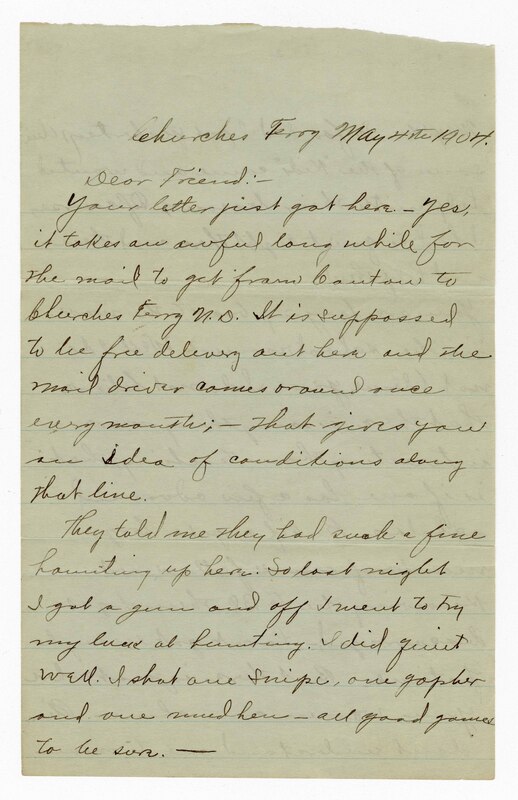 Churches Ferry May 4th 1904.
Dear Friend:-
Your letter just got here. - Yes,
it takes an awful long while for
the mail to get from Canton to
Churches Ferry N.D. It is suppossed
to be free delivery out here and the
mail driver comes around once
every month; - that gives you
an idea of conditions along
that line.
They told me they had such a fine
haunting up here. So last night
I got a gun and off I went to try
my luck at hunting. I did quiet
well. I shot one Snipe, one gopher
and one mud hen - all good games
to be sure. -